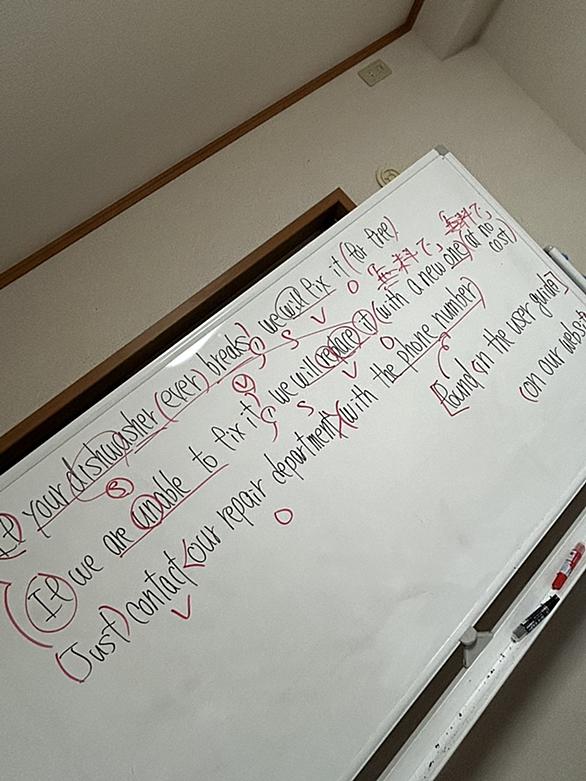 If your dishwasher (ever) breaks, we will fix it (for free) 無料で,
S V S V O
If we are unable to fix it, we will replace it (with a new one) (at no cost) 無料で,
S V O
(Just) contact <our repair department> (with the phone number)
V O
[found (in the user guide]
(on our website